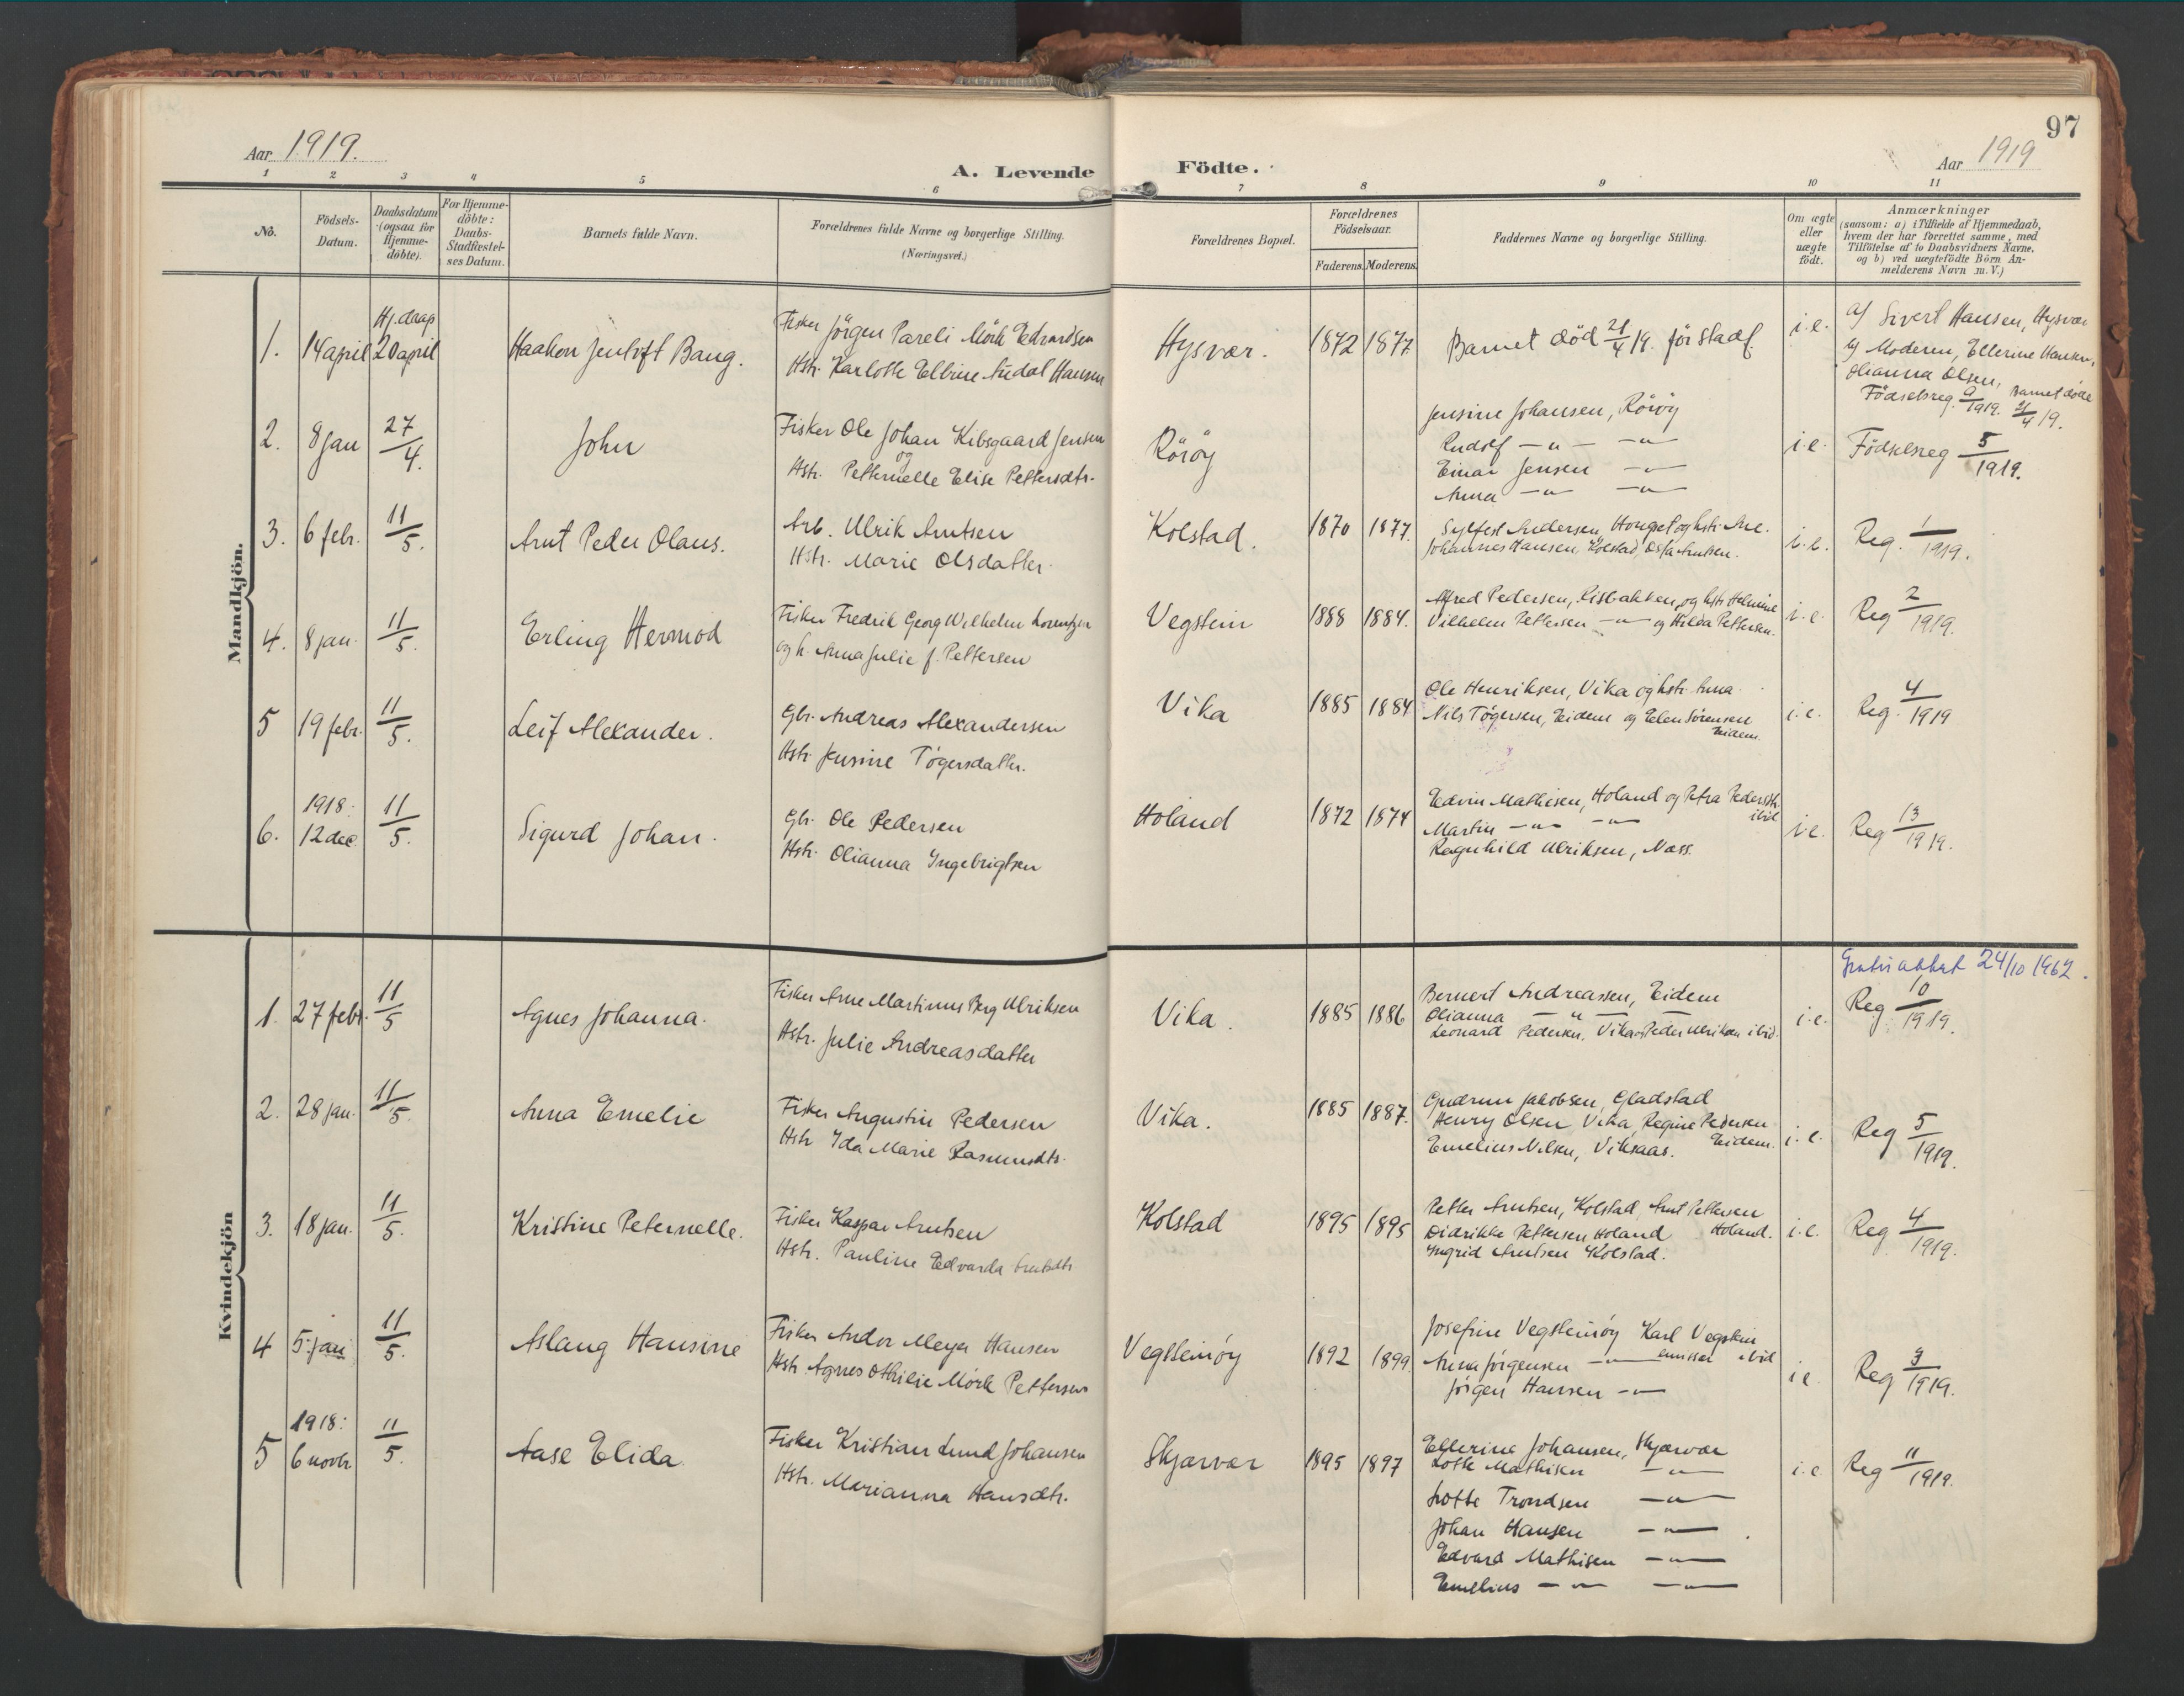 97
Aar 1919.
A. Levende Födte.
Aar 1919
1 2 3 4 5 6 7 8 9 10 11
No.
Födsels-Datum.
Daabsdatum (ogsaa for Hjemme-döbte).
For Hjemme-döbte: Daabs-Stadfæstel-ses Datum.
Barnets fulde Navn.
Forældrenes fulde Navne og borgerlige Stilling.
(Næringsvei.)
Forældrenes Bopæl.
Forældrenes Födselsaar.
Faderens. Moderens.
Faddernes Navne og borgerlige Stilling.
Om ægte eller uægte födt.
Anmærkninger
(saasom: a) i Tilfælde af Hjemmedaab,
hvem der har forrettet samme, med
Tilföielse af to Daabsvidners Navne,
og b) ved uægtefödte Börn An-
melderens Navn m. V.)
Mandkjön.
1. 14 april Hj.daap 20 april Haakon Jentoft Bang.
Fisker Jörgen Pareli Mörk Edvardsen
Hstr. Karlotte Elbine Audal Hansen
Hysvær. 1872 1877 Barnet död 21/4 19. för stadf. i.e.
a/ Sivert Hansen, Hysvær
b/ Moderen, Ellerine Hansen,
Olianna Olsen, Barnet döde
Födselsreg. 9/1919. 21/4 19.
2. 8 jan 27/4. John
Fisker Ole Johan Kibsgaard Jensen
og
Hstr. Petternelle Elise Pettersdtr.
Röröy
Jensine Johansen, Röröy
Rudolf — " — — " —
Einar Jensen — " —
Anna — " — — " —
i.e. Födselsreg 5/1919.
3. 6 febr. 11/5. Arnt Peder Olaus.
Arb. Ulrik Arntsen
Hstr. Marie Olsdatter.
Kolstad. 1870 1877.
Sylfest Andersen, Hongset og hstr. Ane.
Johannes Hansen, Kolstad, Arntsen.
i.e. Reg. 1/1919.
4. 8 jan. 11/5. Erling Hermod
Fisker Fredrik Georg Wilhelm Lorentzen
og h. Anna Julie f. Pettersen
Vegstein 1888 1884.
Alfred Pedersen, Risbakken, og hstr Helmine
Vilhelm Pettersen — " — og Hilda Pettersen.
i.e. Reg 2/1919.
5 19 febr. 11/5. Leif Alexander.
Gbr. Andreas Alexandersen
Hstr Jensine Tögersdatter.
Vika 1885 1884
Ole Henriksen, Vika og hstr. Anna.
Nils Tögersen, Eidem og Elen Sörensen
Eidem.
i.e. Reg. 4/1919
6. 1918: 12 dec 11/5. Sigurd Johan.
Gbr. Ole Pedersen
Hstr. Olianna Ingebrigtsen
Holand 1872 1874
Edvin Mathisen, Holand og Petra Pedersdtr.
ibid
Martin — " — — " —
Ragnhild Ulriksen, Næss.
i.e. Reg 13/1919.
Kvindekjön
Gratisattest 24/10 1962.
1. 27 febr. 11/5 Agnes Johanna.
Fisker Arne Martinus Berg Ulriksen
Hstr. Julie Andreasdatter
Vika. 1885 1886
Bernert Andreassen, Eidem
Olianna — " — —
Leonard Pedersen, Vika og Peder Ulriksen ibid.
i.e. Reg 10/1919.
2. 28 jan. 11/5. Anna Emelie
Fisker Augustin Pedersen
Hstr Ida Marie Rasmusdtr.
Vika. 1885 1887.
Gudrun Jakobsen, Gladstad
Henry Olsen Vika, Regine Pedersen
Eidem.
Emelius Nilsen, Viksaas.
i.e. Reg 5/1919.
3. 18 jan. 11/5. Kristine Peternelle.
Fisker Kaspar Arntsen
Hstr. Pauline Edvarda Arntsdtr
Kolstad 1895 1895
Petter Arntsen, Kolstad, Arnt Pettersen
Didrikke Pettersen Holand Holand.
Ingrid Arntsen Kolstad.
i.e. Reg 4/1919.
4 5 jan 11/5. Aslaug Hansine
Fisker Andor Meyer Hansen
Hstr. Agnes Othilie Mörk Pettersen
Vegsteinöy 1892 1899
Josefine Vegsteinöy Karl Vegstein
Anna Jörgensen — " — ibid
Jörgen Hansen — " —
i e Reg 3/1919.
5 1918: 6 novbr 11/5. Aase Elida.
Fisker Kristian Lund Johansen
Hstr. Marianna Hansdtr.
Skjærvær 1895 1897
Ellerine Johansen, Skjærvær
Lotte Mathisen — " —
Lotte Trondsen — " —
Johan Hansen — " —
Edvard Mathisen — " —
Emelius — " — — " —
i.e. Reg 11/1919.